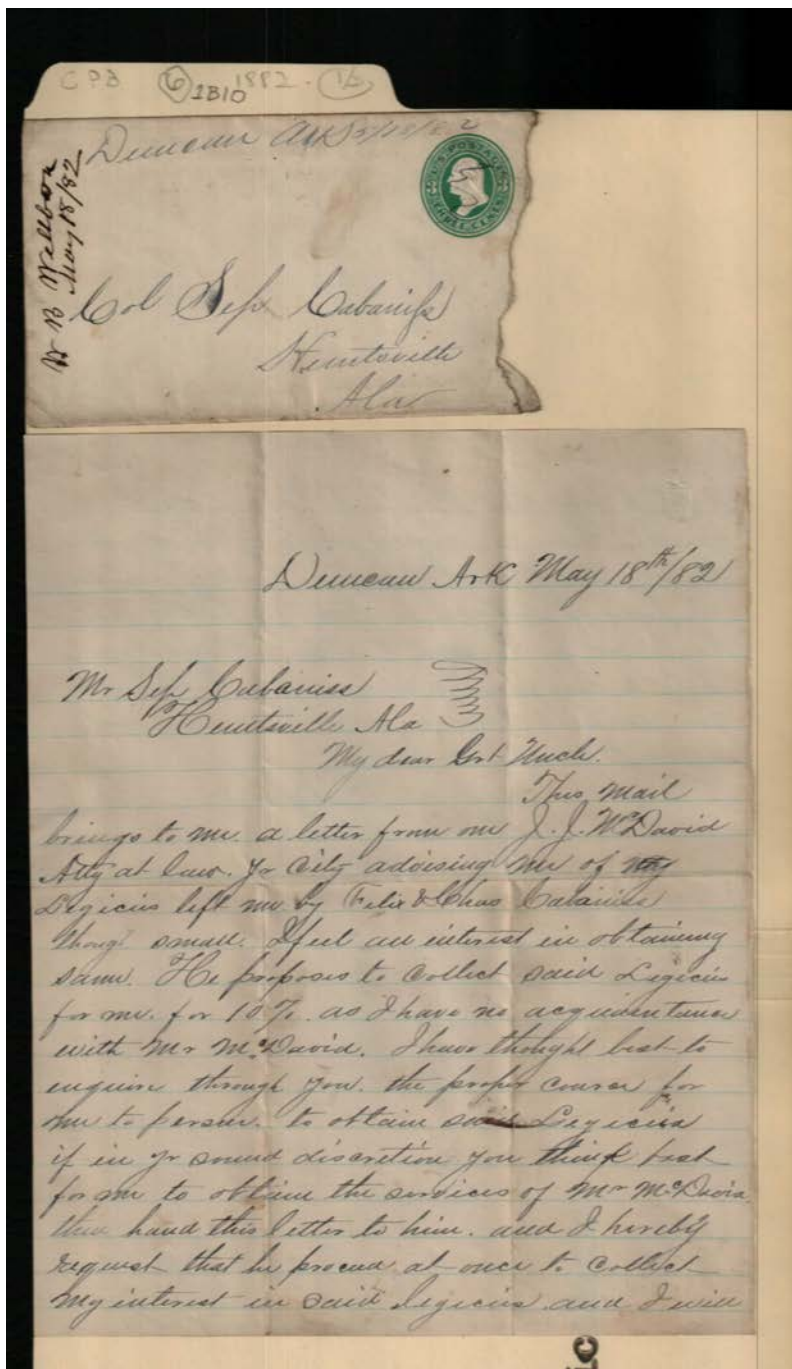 CPB 6 1B10 1882 - (1/2)
Duncan Ark 5/18/82
W B Wellborn
May 18/82
U.S. POSTAGE
THREE CENTS
Col Sep Cabaniss
Huntsville
Ala
Duncan Ark May 18th/82
Mr Sep Cabaniss
Huntsville Ala
My dear Grt Uncle.
This mail
brings to me a letter from one J. J. McDavid
Atty at law. Yr City advising me of my
Legicies left me by Felix & Chas Cabaniss
though small. I feel an interest in obtaining
same. He proposes to Collect said Legicies
for me. for 10%. as I have no acquaintance
with Mr McDavid. I have thought best to
enquire through you. the proper course for
me to persue. to obtain said Legicies
if in yr sound discretion you think best
for me to obtain the services of Mr McDavid.
then hand this letter to him. and I hereby
request that he proceed at once to Collect
my interest in said legicies and I will